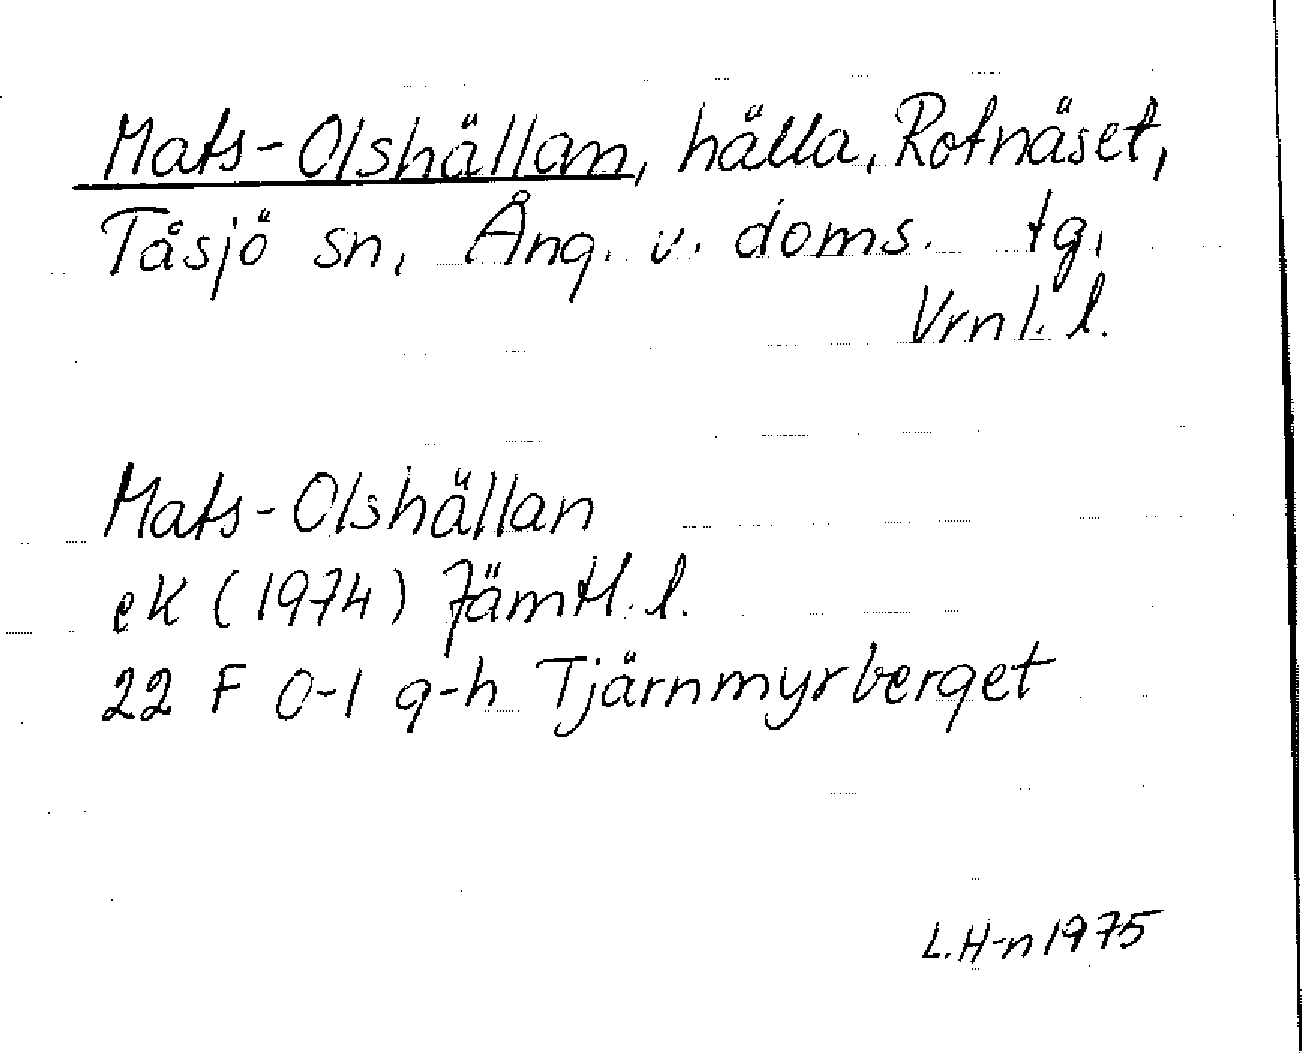 Mats-Olshällan, hälla, Rotnäset,
Tåsjö sn, Ång. v. doms. tg,
Vrnl. l.
Mats-Olshällan
eK (1974) Jämtl. l.
22 F 0-1 g-h Tjärnmyrberget
L.H-n 1975